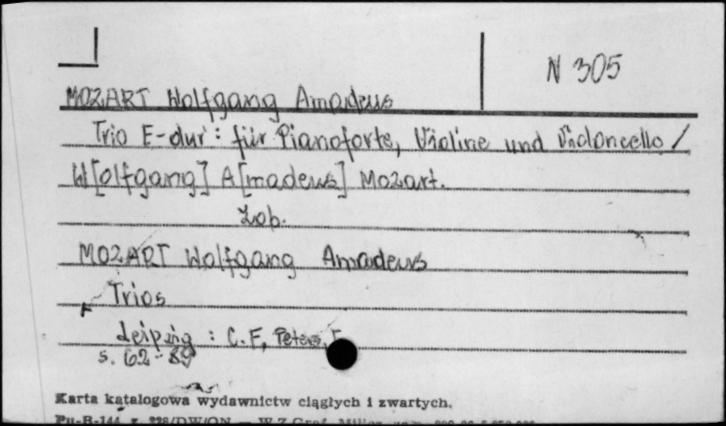 N 305
MOZART Wolfgang Amadeus
Trio E-dur : für Pianoforte, Violine und Violoncello /
W[olfgang] A[madeus] Mozart.
Zob.
MOZART Wolfgang Amadeus
Trios
Leipzig : C. F. Peters,
s. 62-89
Karta katalogowa wydawnictw ciągłych i zwartych.
Pu-B-144